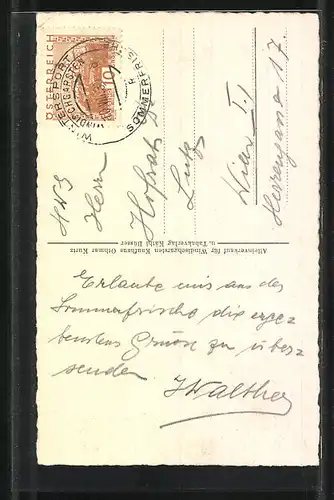 ÖSTERREICH
10
WINTERSPORT
WINDISCHGARSTEN
SOMMERFRISCHE
Herrn
Hofrat
Lutz
Wien I.,
Herrengasse 17.
Alleinverkauf für Windischgarsten Kaufhaus Othmar Kurtz
u. Tabakverlag Käthi Büsser
Erlaube mir aus der
Sommerfrische die erge-
bensten Grüsse zu über-
senden
Walther